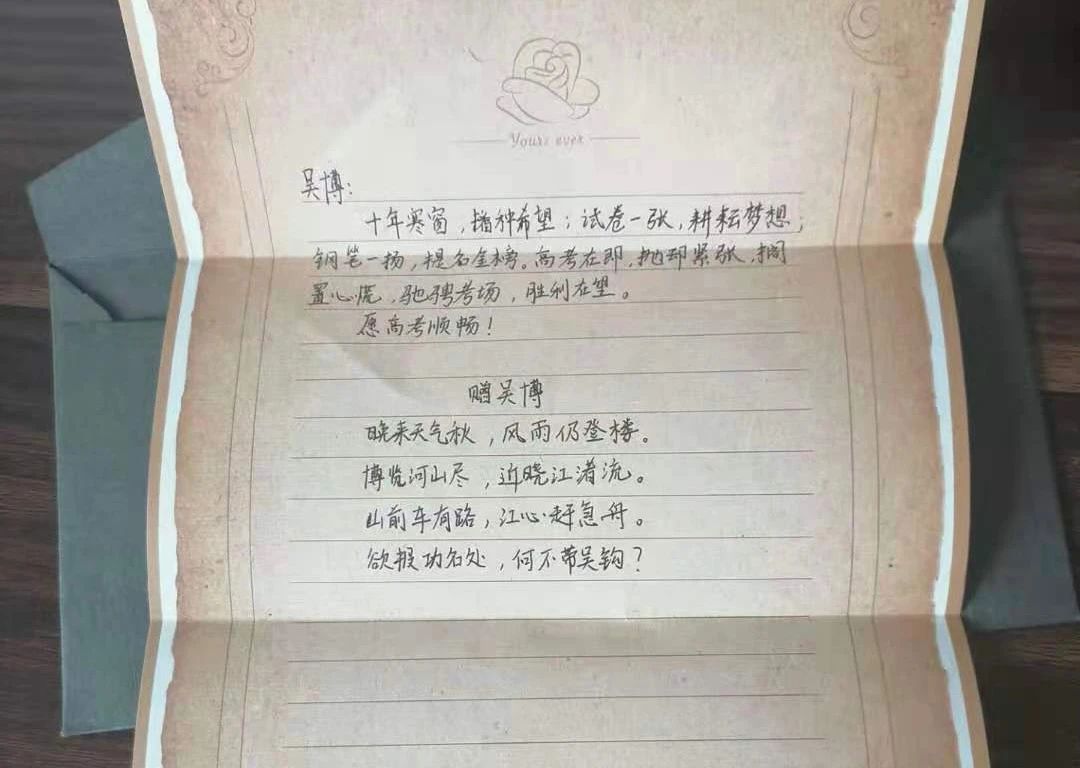 Yours ever
吴博:
十年寒窗,播种希望;试卷一张,耕耘梦想;
钢笔一扬,提名金榜。高考在即,抛却紧张,搁
置心慌,驰骋考场,胜利在望。
愿高考顺畅!
赠吴博
晚来天气秋,风雨仍登楼。
博览河山尽,近晓江渚流。
山前车有路,江心赶急舟。
欲报功名处,何不带吴钩?